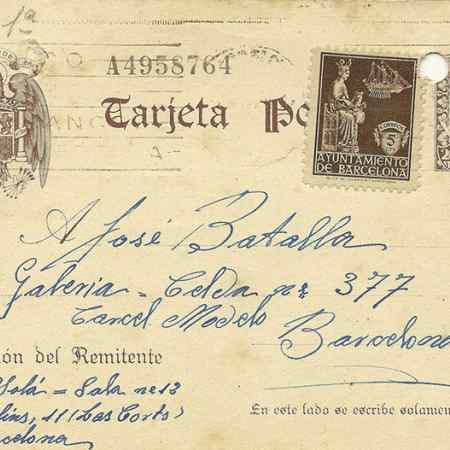 1ª
A4958764
Tarjeta Po
CORREOS
5
AYUNTAMIENTO
DE BARCELONA
A José Batalla
Galeria = Celda nº 377
Carcel Modelo
Barcelona
ión del Remitente
Solá = Sala nº 13
lins, 11 (Las Corts)
rcelona
En este lado se escribe solamen